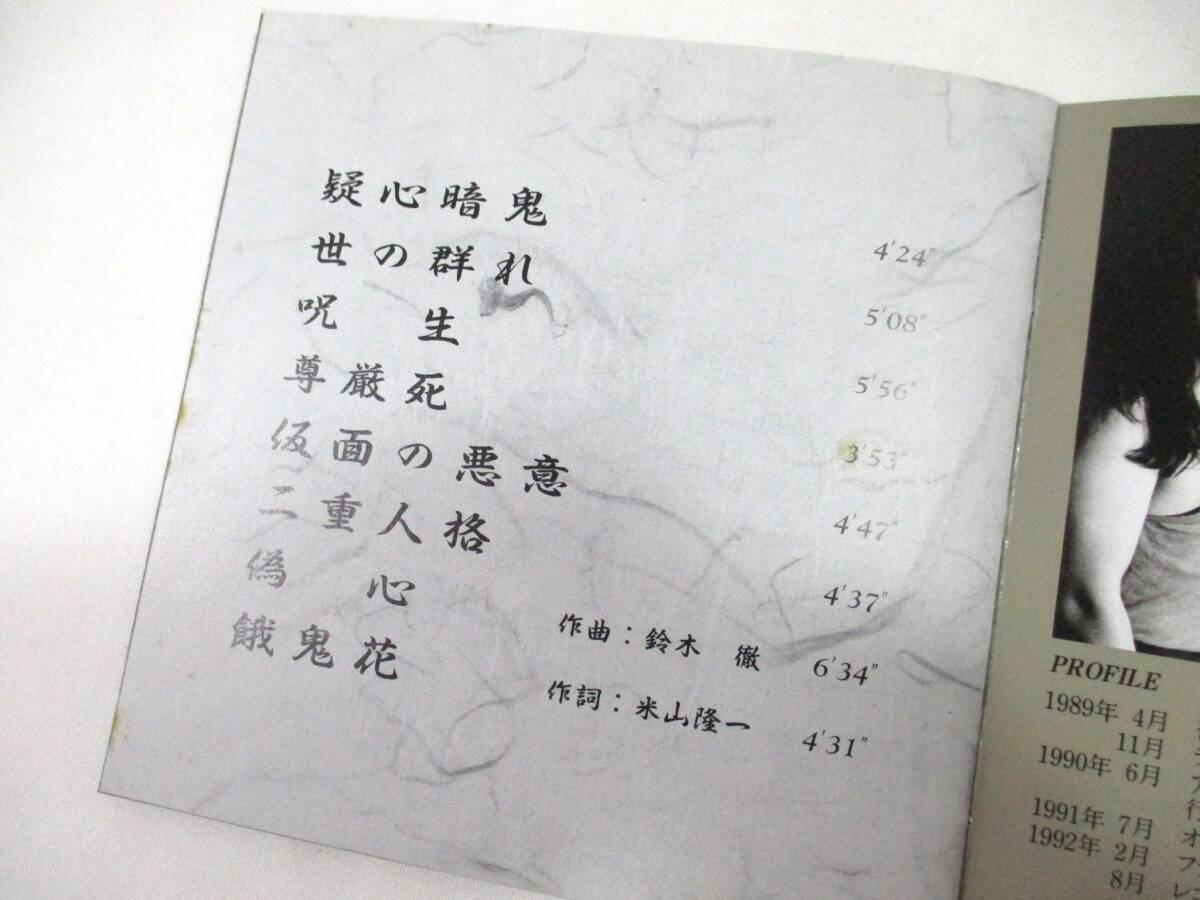 疑心暗鬼 4'24"
世の群れ 5'08"
呪 生 5'56"
尊厳死 3'53"
仮面の悪意 4'47"
二重人格 4'37"
偽 心 6'34"
餓鬼花 4'31"
作曲：鈴木 徹
作詞：米山隆一
PROFILE
1989年 4月
11月
1990年 6月
行
1991年 7月 オ
1992年 2月 フ
8月 レ